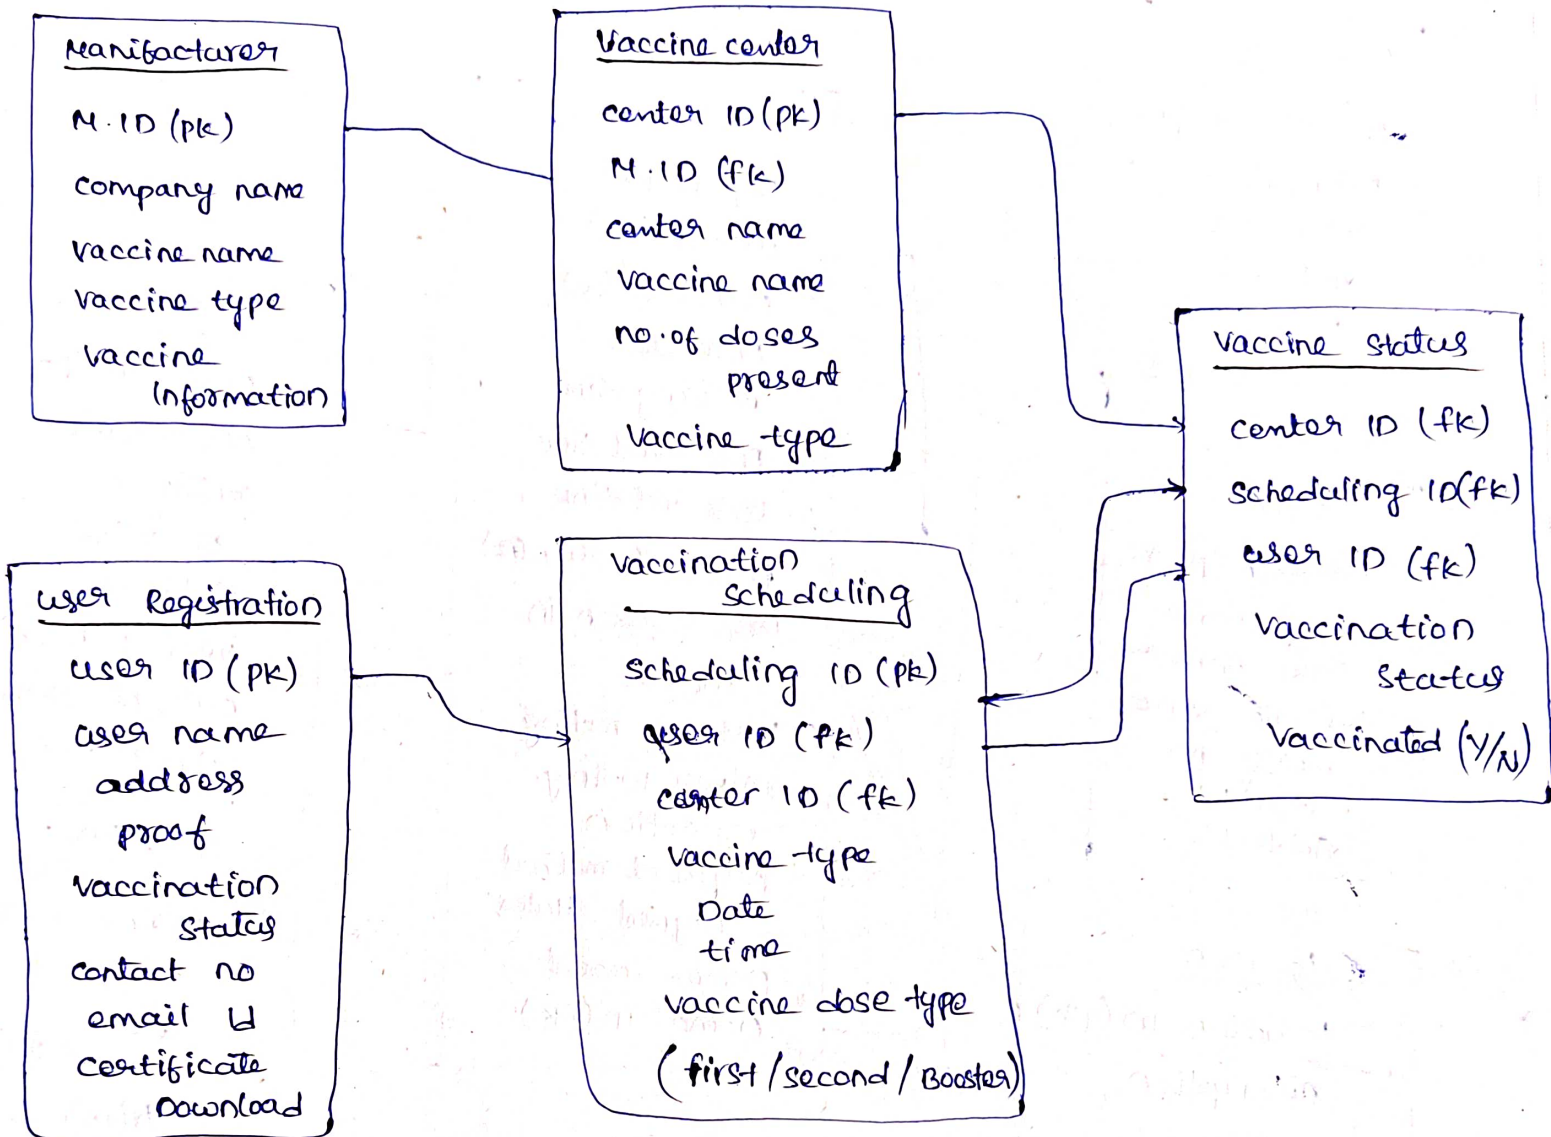 Manifacturer
M.ID (pk)
company name
vaccine name
vaccine type
vaccine
Information
Vaccine center
center ID (pk)
M.ID (fk)
center name
vaccine name
no.of doses
present
Vaccine type
Vaccine Status
center ID (fk)
scheduling ID (fk)
user ID (fk)
Vaccination
Status
Vaccinated (Y/N)
user Registration
user ID (pk)
user name
address
proof
vaccination
Status
contact no
email Id
certificate
Download
Vaccination
scheduling
scheduling ID (pk)
user ID (fk)
center ID (fk)
vaccine type
Date
time
vaccine dose type
(first/second/Booster)